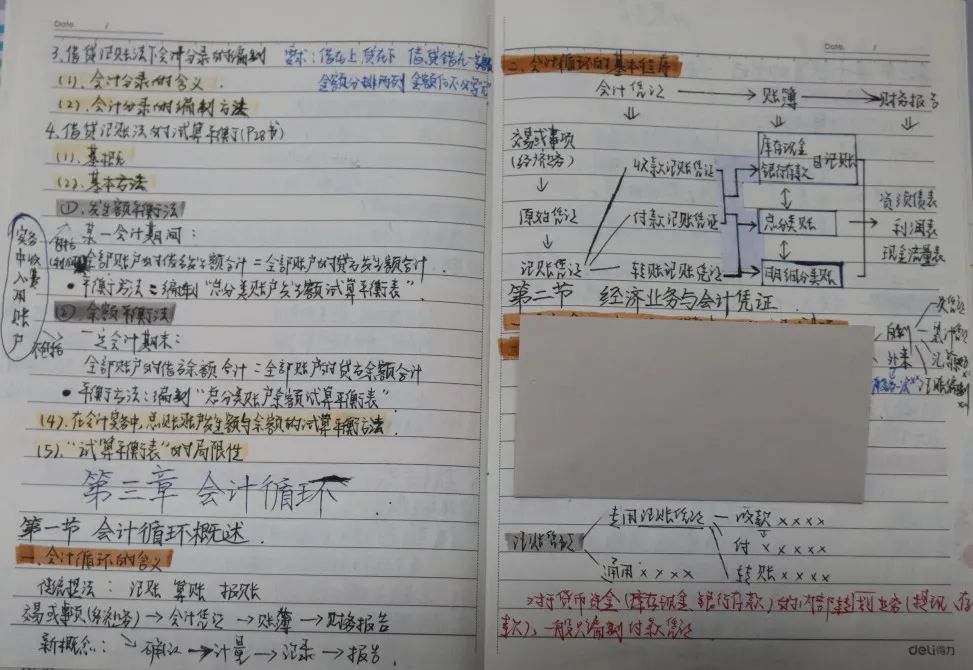 Date. /
3.借贷记账法下会计分录的编制 要求：借在上，贷在下 借，贷错开一
金额分排两列 金额后不必写
(1).会计分录的含义
(2).会计分录的编制方法
4.借贷记账法的试算平衡(P28书)
(1).其概念
(2).基本方法
①.发生额平衡法
某一会计期间：
全部账户的借方发生额合计=全部账户的贷方发生额合计
•平衡方法：编制"总分类账户发生额试算平衡表"
②.余额平衡法
一定会计期末：
全部账户的借方余额合计=全部账户的贷方余额合计
•平衡方法：编制"总分类账户余额试算平衡表"
(4).在会计实务中，总账账户发生额与余额的试算平衡方法
(5)."试算平衡表"的局限性
包括
不包括
第三章 会计循环
第一节 会计循环概述
一.会计循环的含义
传统提法：记账 算账 报账
交易或事项(经济业务)→会计凭证→账簿→财务报告
新概念：确认→计量→记录→报告
Date. /
二.会计循环的基本程序
会计凭证 → 账簿 → 财务报告
交易或事项
(经济业务)
原始凭证
记账凭证
收款记账凭证
付款记账凭证
转账记账凭证
库存现金
银行存款 日记账
总分类账
明细分类账
资产负债表
利润表
现金流量表
第二节 经济业务与会计凭证
自制
外来
记账凭证
专用记账凭证 — 收款××××
付×××××
转账××××
通用××××
对于货币资金(库存现金 银行存款)的相互划转业务(提现、存
款)，一般只编制付款凭证
deli得力